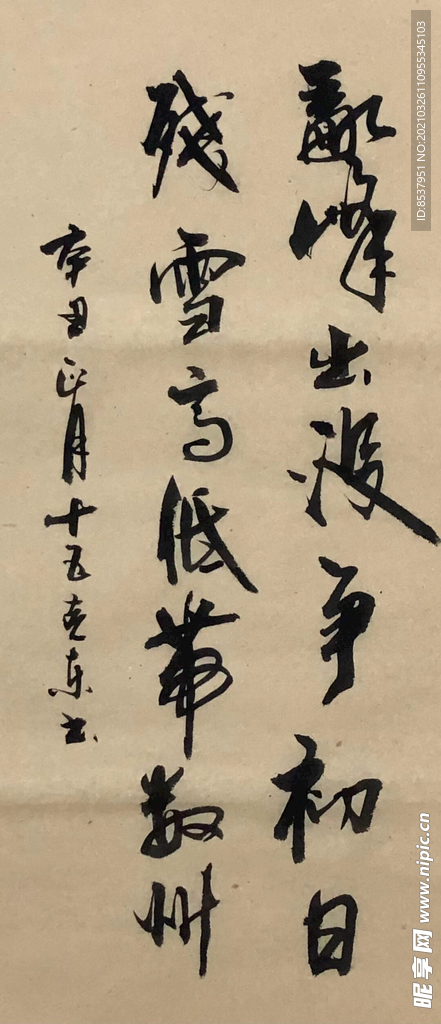 乱峰出没争初日
残雪高低带数州
辛丑正月十五克东书
ID:8537951 NO:20210326110955345103
昵享网 www.nipic.cn